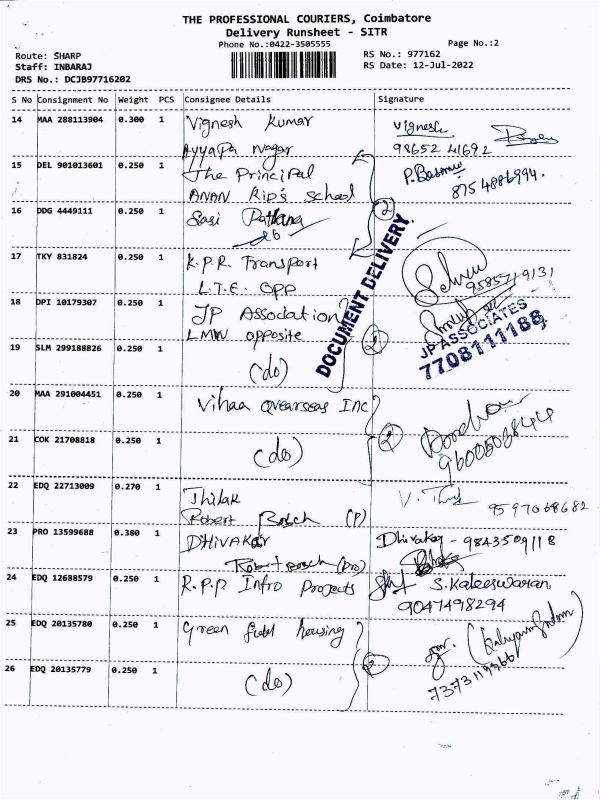 THE PROFESSIONAL COURIERS, Coimbatore
Delivery Runsheet - SITR
Phone No.:0422-3505555
Page No.:2
Route: SHARP
RS No.: 977162
Staff: INBARAJ
RS Date: 12-Jul-2022
DRS No.: DCJB97716202
S No Consignment No Weight PCS Consignee Details Signature
14 MAA 288113904 0.300 1 Vignesh Kumar Vignesh
Ayyapa Nagar 98652 41692
15 DEL 901013601 0.250 1 The Principal
ANAN Kip's School 8754886994.
16 DDG 4449111 0.250 1 Sasi
2
DOCUMENT DELIVERY.
17 TKY 831824 0.250 1 K.P.R. Transport
L.T.E. opp 9585719131
18 DPI 10179307 0.250 1 JP Association
LMW opposite
JP ASSOCIATES
7708111188
19 SLM 299188826 0.250 1 (do) 2
20 MAA 291004451 0.250 1 Vihaa Overseas Inc
21 COK 21708818 0.250 1 (do) 2
22 EDQ 22713009 0.270 1 Thilak
Robert Bosch (P) 9597068682
23 PRO 13599688 0.380 1 DHIVAKAR Dhivakar - 9843509118
Robert Bosch (Pro)
24 EDQ 12688579 0.250 1 R.P.P Infro Projects S. Kaleeswaran
9047498294
25 EDQ 20135780 0.250 1 Green field housing
26 EDQ 20135779 0.250 1 (do) 2